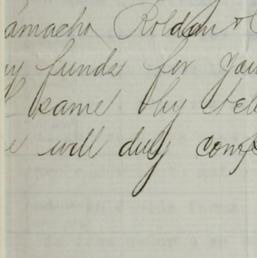 amacho, Roldan & C
y funds for you
same by tel
e will duly comp